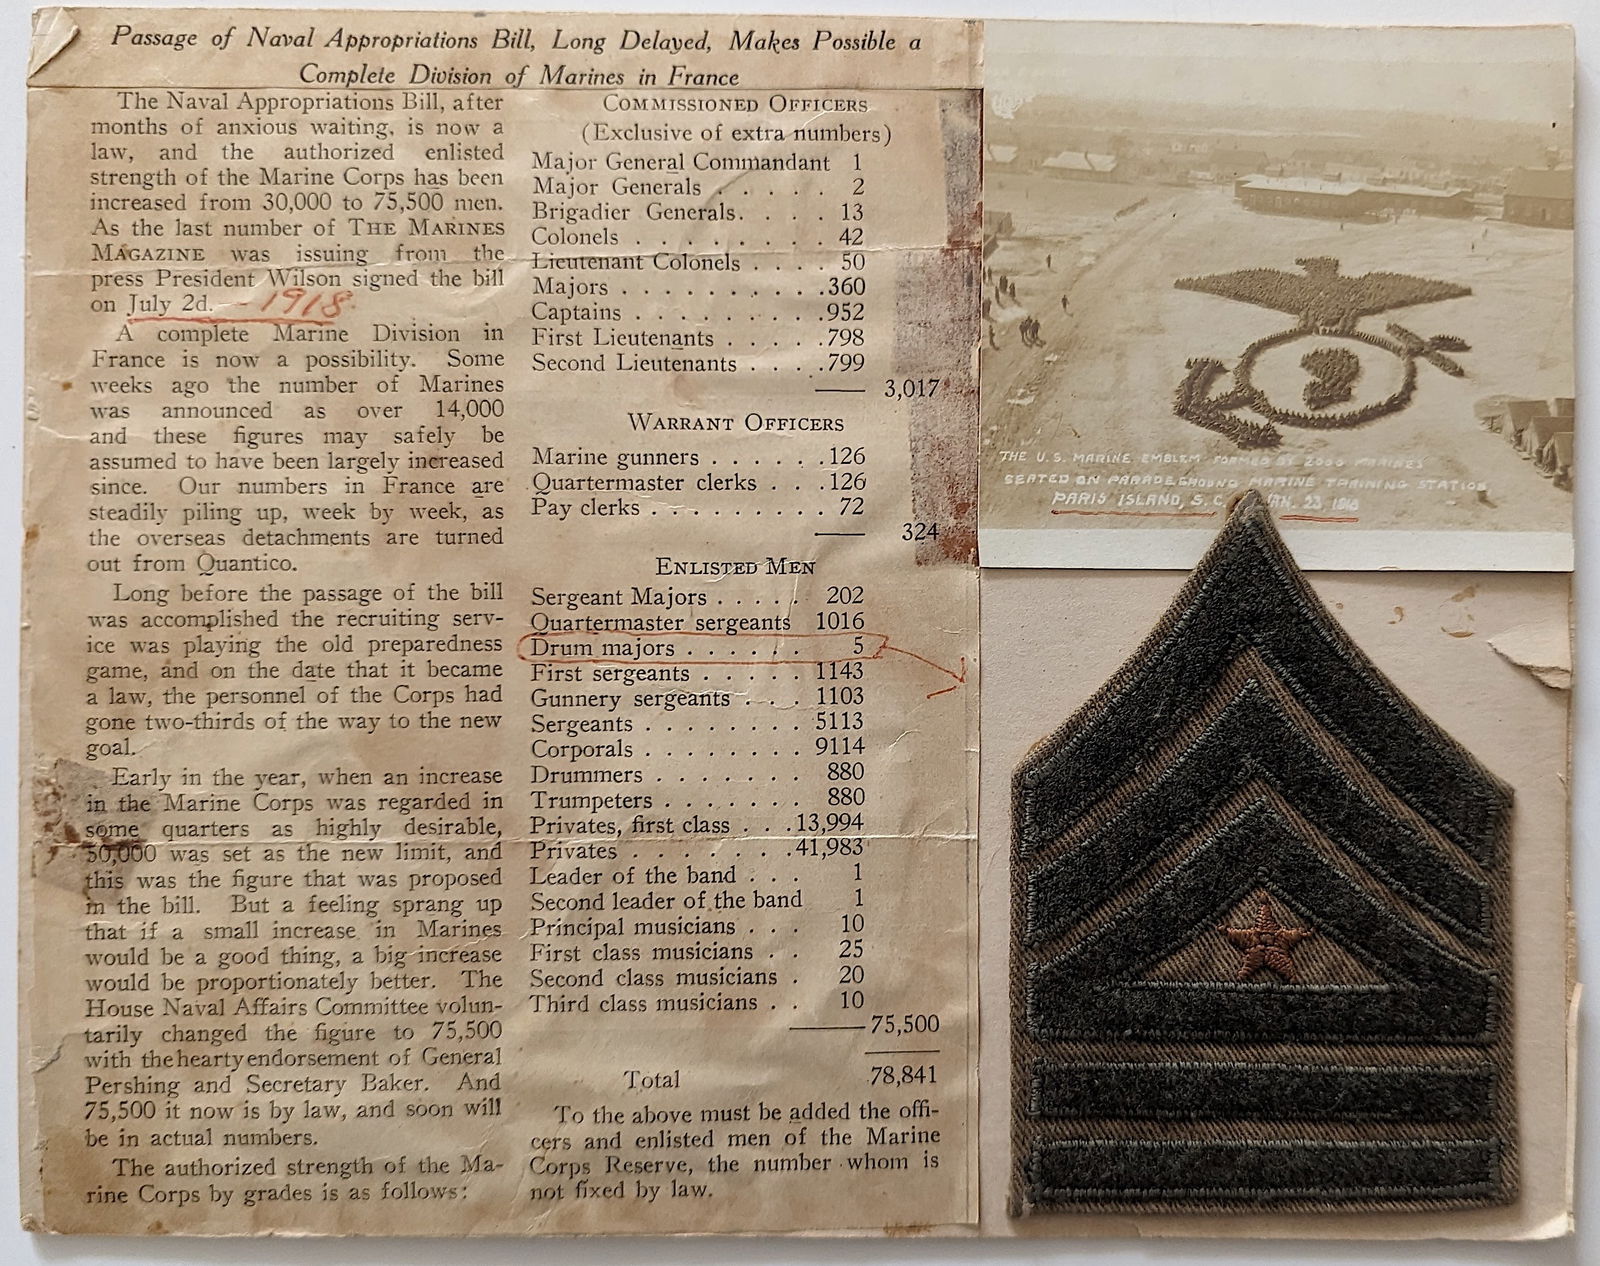 Passage of Naval Appropriations Bill, Long Delayed, Makes Possible a
Complete Division of Marines in France
The Naval Appropriations Bill, after
months of anxious waiting, is now a
law, and the authorized enlisted
strength of the Marine Corps has been
increased from 30,000 to 75,500 men.
As the last number of THE MARINES
MAGAZINE was issuing from the
press President Wilson signed the bill
on July 2d. - 1918.
A complete Marine Division in
France is now a possibility. Some
weeks ago the number of Marines
was announced as over 14,000
and these figures may safely be
assumed to have been largely increased
since. Our numbers in France are
steadily piling up, week by week, as
the overseas detachments are turned
out from Quantico.
Long before the passage of the bill
was accomplished the recruiting serv-
ice was playing the old preparedness
game, and on the date that it became
a law, the personnel of the Corps had
gone two-thirds of the way to the new
goal.
Early in the year, when an increase
in the Marine Corps was regarded in
some quarters as highly desirable,
50,000 was set as the new limit, and
this was the figure that was proposed
in the bill. But a feeling sprang up
that if a small increase in Marines
would be a good thing, a big increase
would be proportionately better. The
House Naval Affairs Committee volun-
tarily changed the figure to 75,500
with the hearty endorsement of General
Pershing and Secretary Baker. And
75,500 it now is by law, and soon will
be in actual numbers.
The authorized strength of the Ma-
rine Corps by grades is as follows:
COMMISSIONED OFFICERS
(Exclusive of extra numbers)
Major General Commandant 1
Major Generals . . . . . 2
Brigadier Generals. . . . 13
Colonels . . . . . . . . 42
Lieutenant Colonels . . . . 50
Majors . . . . . . . . . .360
Captains . . . . . . . . .952
First Lieutenants . . . . .798
Second Lieutenants . . . .799
3,017
WARRANT OFFICERS
Marine gunners . . . . . .126
Quartermaster clerks . . .126
Pay clerks . . . . . . . . . 72
324
ENLISTED MEN
Sergeant Majors . . . . . 202
Quartermaster sergeants 1016
Drum majors . . . . . . 5
First sergeants . . . . . 1143
Gunnery sergeants . . . 1103
Sergeants . . . . . . . . 5113
Corporals . . . . . . . . 9114
Drummers . . . . . . . 880
Trumpeters . . . . . . . 880
Privates, first class . . .13,994
Privates . . . . . . . .41,983
Leader of the band . . . 1
Second leader of the band 1
Principal musicians . . . 10
First class musicians . . 25
Second class musicians . 20
Third class musicians . . 10
75,500
Total 78,841
To the above must be added the offi-
cers and enlisted men of the Marine
Corps Reserve, the number whom is
not fixed by law.
THE U.S. MARINE EMBLEM FORMED BY 2000 MARINES
SEATED ON PARADEGROUND MARINE TRAINING STATION
PARIS ISLAND, S.C. JAN. 23, 1918